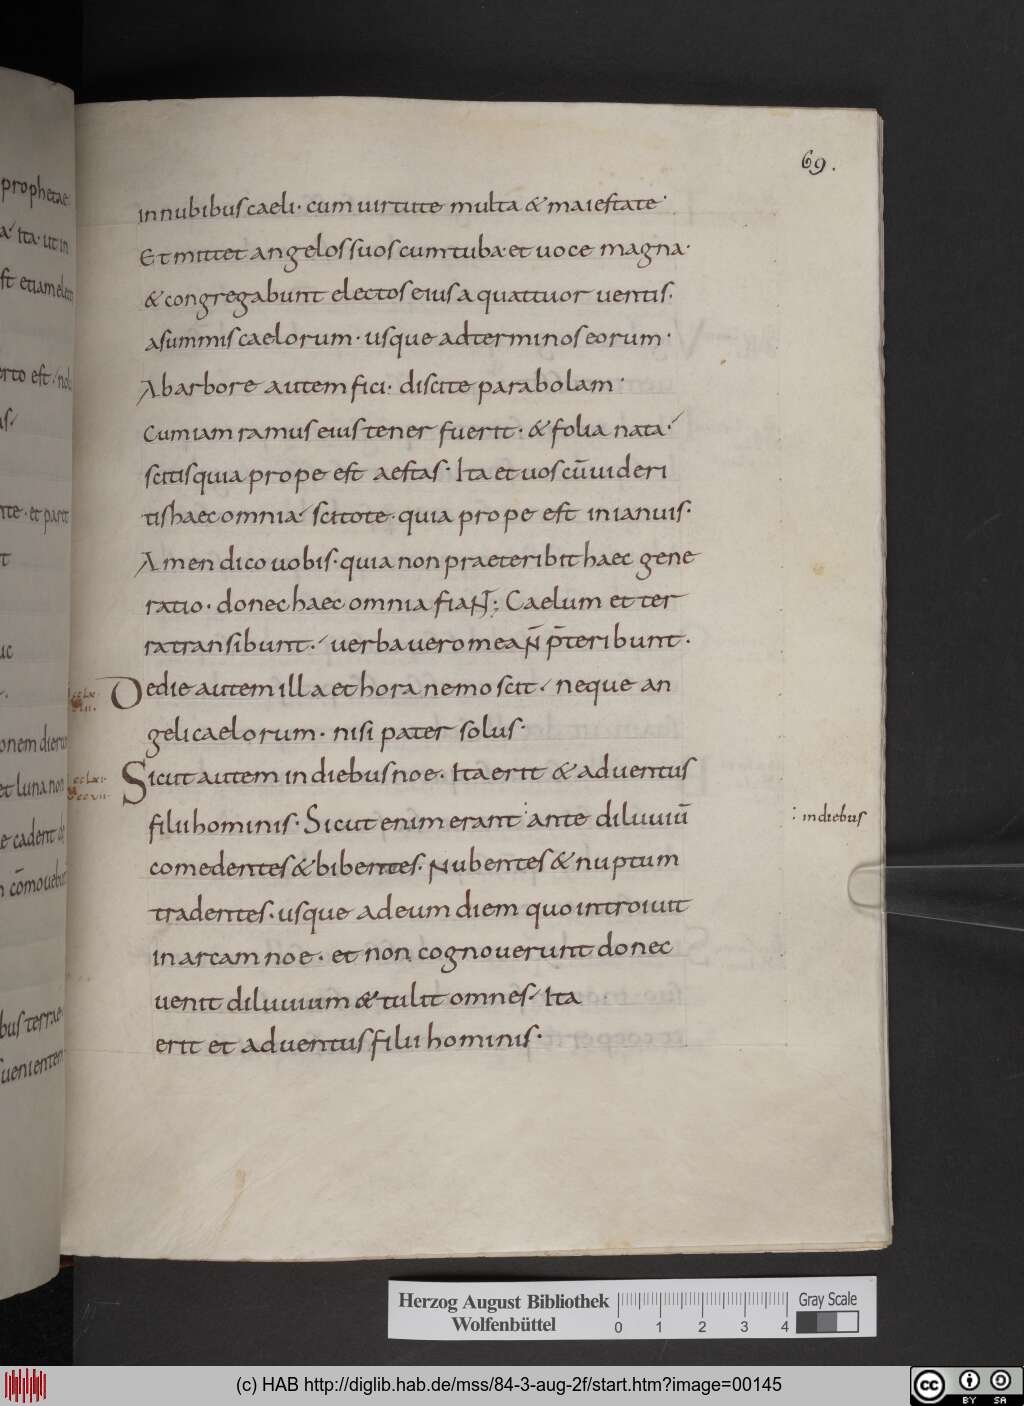 69.
in nubibus caeli· cum uirtute multa & maiestate·
Et mittet angelos suos cum tuba· et uoce magna·
& congregabunt electos eius a quattuor uentis·
a summis caelorum· usque ad terminos eorum·
Ab arbore autem fici· discite parabolam·
Cum iam ramus eius tener fuerit· & folia nata·
scitis quia prope est aestas· Ita et uos cū uideri
tis haec omnia scitote· quia prope est in ianuis·
Amen dico uobis· quia non praeteribit haec gene
ratio· donec haec omnia fiaNT; Caelum et ter
ra transibunt· uerba uero mea n̄ p̄teribunt·
De die autem illa et hora nemo scit· neque an
geli caelorum· nisi pater solus·
Sicut autem in diebus noe· Ita erit & aduentus
filii hominis· Sicut enim erant ante diluuiū
: in diebus
comedentes & bibentes· Nubentes & nuptum
tradentes· usque ad eum diem quo introiuit
in arcam noe· et non cognouerunt donec
uenit diluuium & tulit omnes· Ita
erit et aduentus filii hominis·
prophetae
ita· ut in
etiam elect
est· noli
et part
uc
onem dieru
et luna non
e cadent de
cōmouebu
bus terrae
uenientem
Herzog August Bibliothek
Wolfenbüttel
0 1 2 3 4
Gray Scale
(c) HAB http://diglib.hab.de/mss/84-3-aug-2f/start.htm?image=00145
cc BY SA